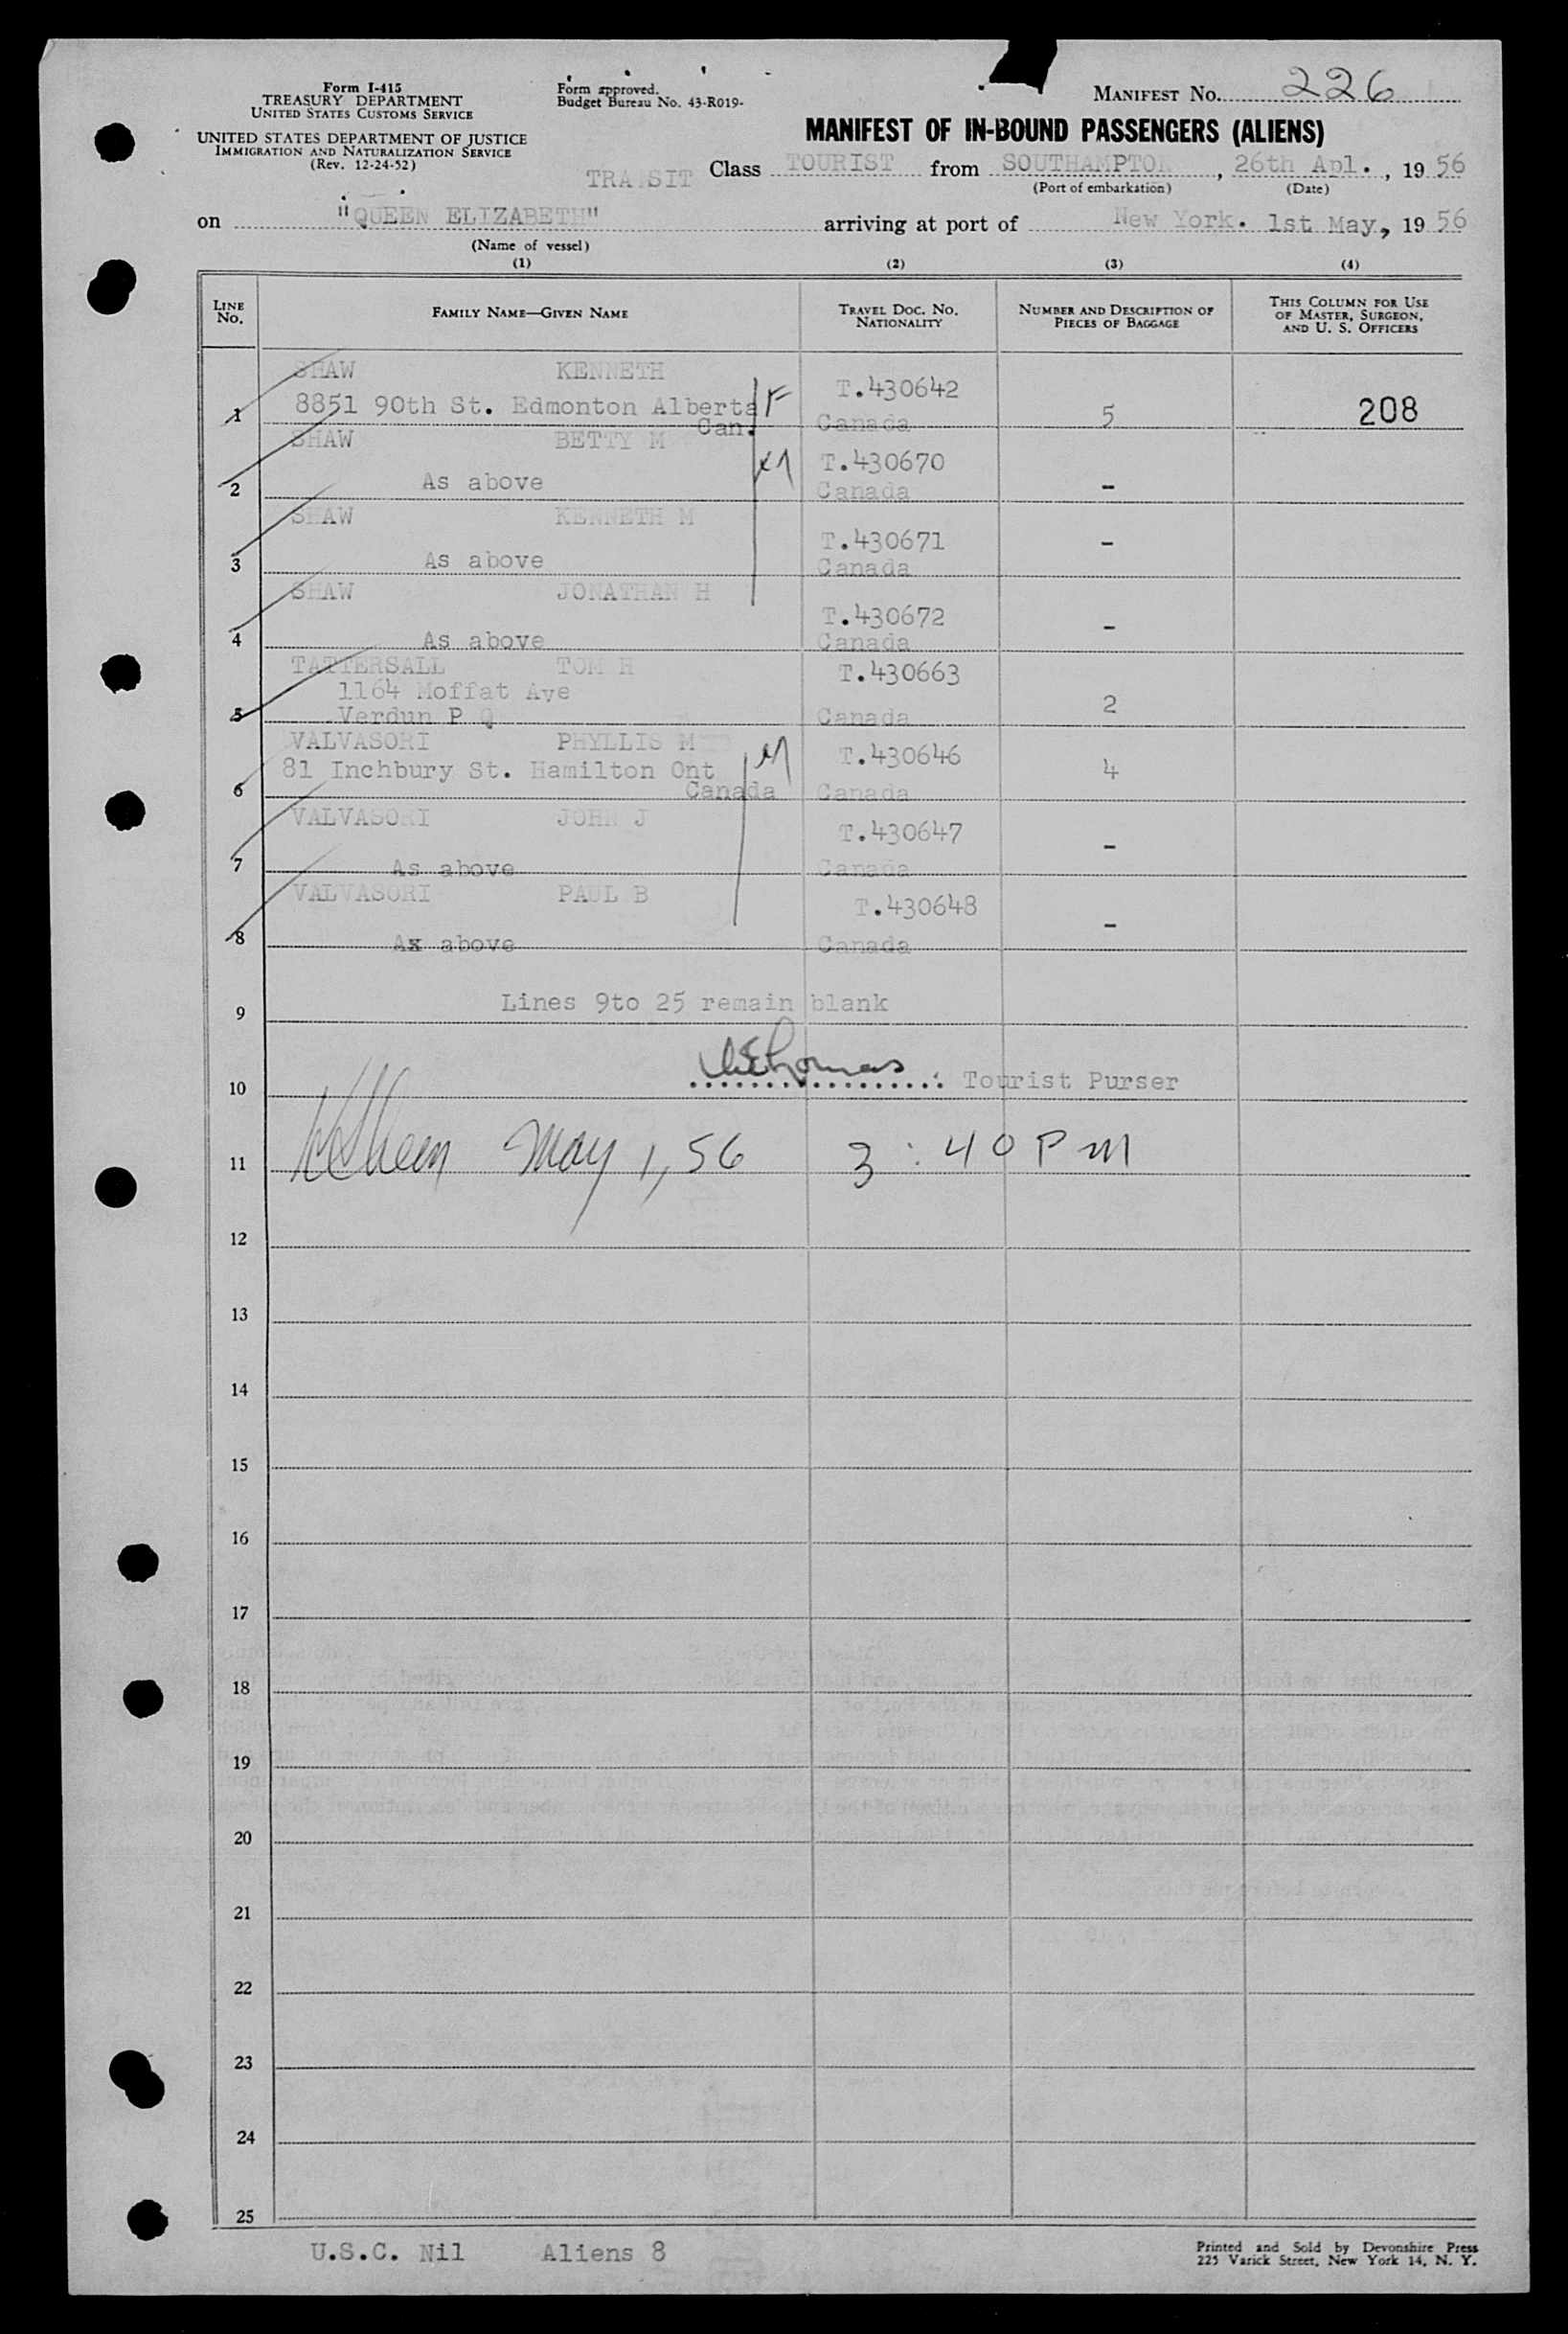 Form I-415
TREASURY DEPARTMENT
UNITED STATES CUSTOMS SERVICE
UNITED STATES DEPARTMENT OF JUSTICE
IMMIGRATION AND NATURALIZATION SERVICE
(Rev. 12-24-52)
Form approved.
Budget Bureau No. 43-R019-
MANIFEST NO. 226
MANIFEST OF IN-BOUND PASSENGERS (ALIENS)
TRANSIT Class TOURIST from SOUTHAMPTON, 26th Apl., 19 56
(Port of embarkation) (Date)
on "QUEEN ELIZABETH" arriving at port of New York. 1st May, 19 56
(Name of vessel)
(1) (2) (3) (4)
LINE No. FAMILY NAME—GIVEN NAME TRAVEL DOC. NO. NATIONALITY NUMBER AND DESCRIPTION OF PIECES OF BAGGAGE THIS COLUMN FOR USE OF MASTER, SURGEON, AND U. S. OFFICERS
SHAW KENNETH T.430642
1 8851 90th St. Edmonton Alberta F Canada 5 208
Can.
SHAW BETTY M T.430670
2 As above Canada -
SHAW KENNETH M T.430671
3 As above Canada -
SHAW JONATHAN H T.430672
4 As above Canada -
TATTERSALL TOM H T.430663
1164 Moffat Ave
5 Verdun P Q Canada 2
VALVASORI PHYLLIS M M T.430646
81 Inchbury St. Hamilton Ont 4
6 Canada Canada
VALVASORI JOHN J T.430647
7 As above Canada -
VALVASORI PAUL B T.430648
8 Ax above Canada -
9 Lines 9to 25 remain blank
10 Thomas Tourist Purser
11 May 1, 56 3:40 PM
12
13
14
15
16
17
18
19
20
21
22
23
24
25
U.S.C. Nil Aliens 8
Printed and Sold by Devonshire Press
225 Varick Street, New York 14, N. Y.